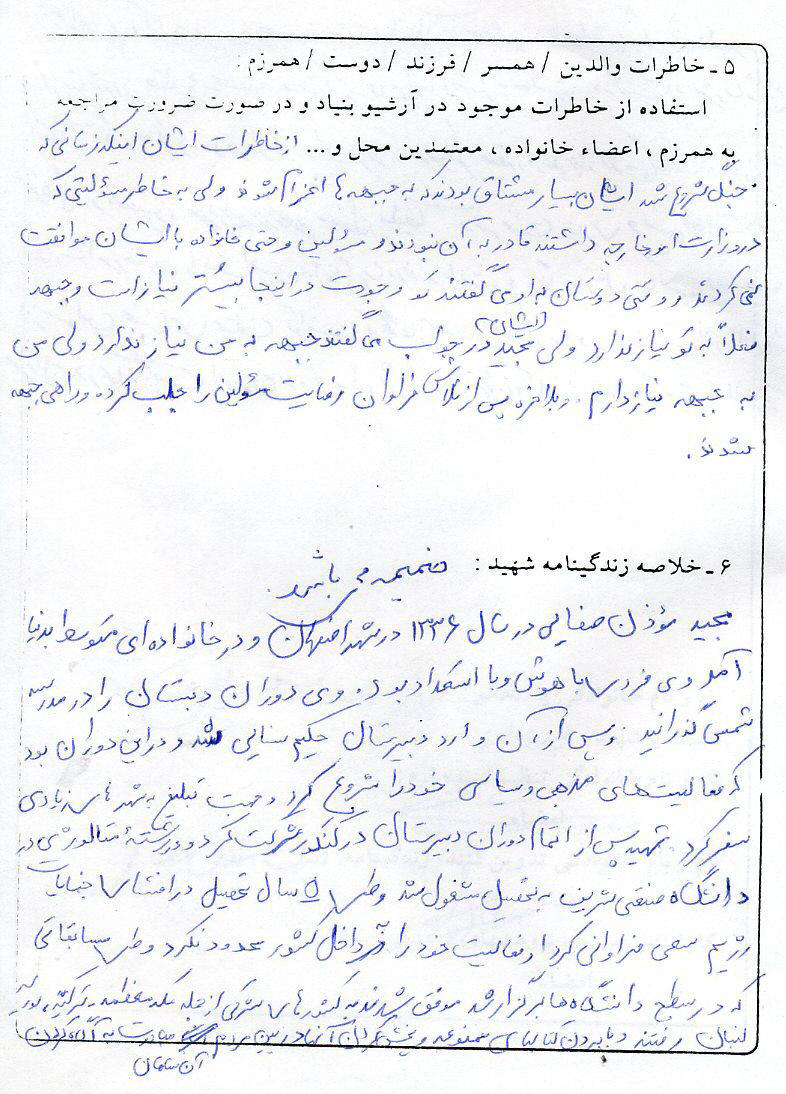 ۵ ـ خاطرات والدین / همسر / فرزند / دوست / همرزم :
استفاده از خاطرات موجود در آرشیو بنیاد و در صورت ضرورت مراجعه
به همرزم ، اعضاء خانواده ، معتمدین محل و ... از خاطرات ایشان اینکه زمانی که
جنگ شروع شد ایشان بسیار مشتاق بودند که به جبهه ها اعزام شوند ولی به خاطر مسئولیتی که
در وزارت امور خارجه داشتند قادر به آن نبودند و مسئولین و حتی خانواده با ایشان موافقت
نمی کردند و وقتی دوستان به او می گفتند که وجودت در اینجا بیشتر نیاز است و جبهه
فعلاً به تو نیاز ندارد ولی مجید (ایشان) در جواب می گفتند جبهه به من نیاز ندارد ولی من
به جبهه نیاز دارم . و بالاخره پس از تلاش فراوان رضایت مسئولین را جلب کرده و راهی جبهه
شدند .
۶ ـ خلاصه زندگینامه شهید : ضمیمه می باشد .
مجید مؤذن صفایی در سال ۱۳۳۶ در شهر اصفهان و در خانواده ای متوسط بدنیا
آمد وی فردی با هوش و با استعداد بود . وی دوران دبستان را در مدرسه
شمس گذرانید و پس از آن وارد دبیرستان حکیم سنایی شد و در این دوران بود
که فعالیت های مذهبی و سیاسی خود را شروع کرد و جهت تبلیغ به شهرهای زیادی
سفر کرد . شهید پس از اتمام دوران دبیرستان در کنکور شرکت کرد و در رشته متالورژی در
دانشگاه صنعتی شریف به تحصیل مشغول شد و طی ۵ سال تحصیل در افشای جنایات
رژیم سعی فراوانی کرد او فعالیت خود را در داخل کشور محدود نکرد و طی مسابقاتی
که در سطح دانشگاه ها برگزار شد موفق شدند به کشورهای دیگری از جمله مکه معظمه ، ترکیه ، سوریه
لبنان رفتند و با بردن کتابهای ممنوعه و پخش کردن آنها در بین مردم به آگاه کردن
آن سامان